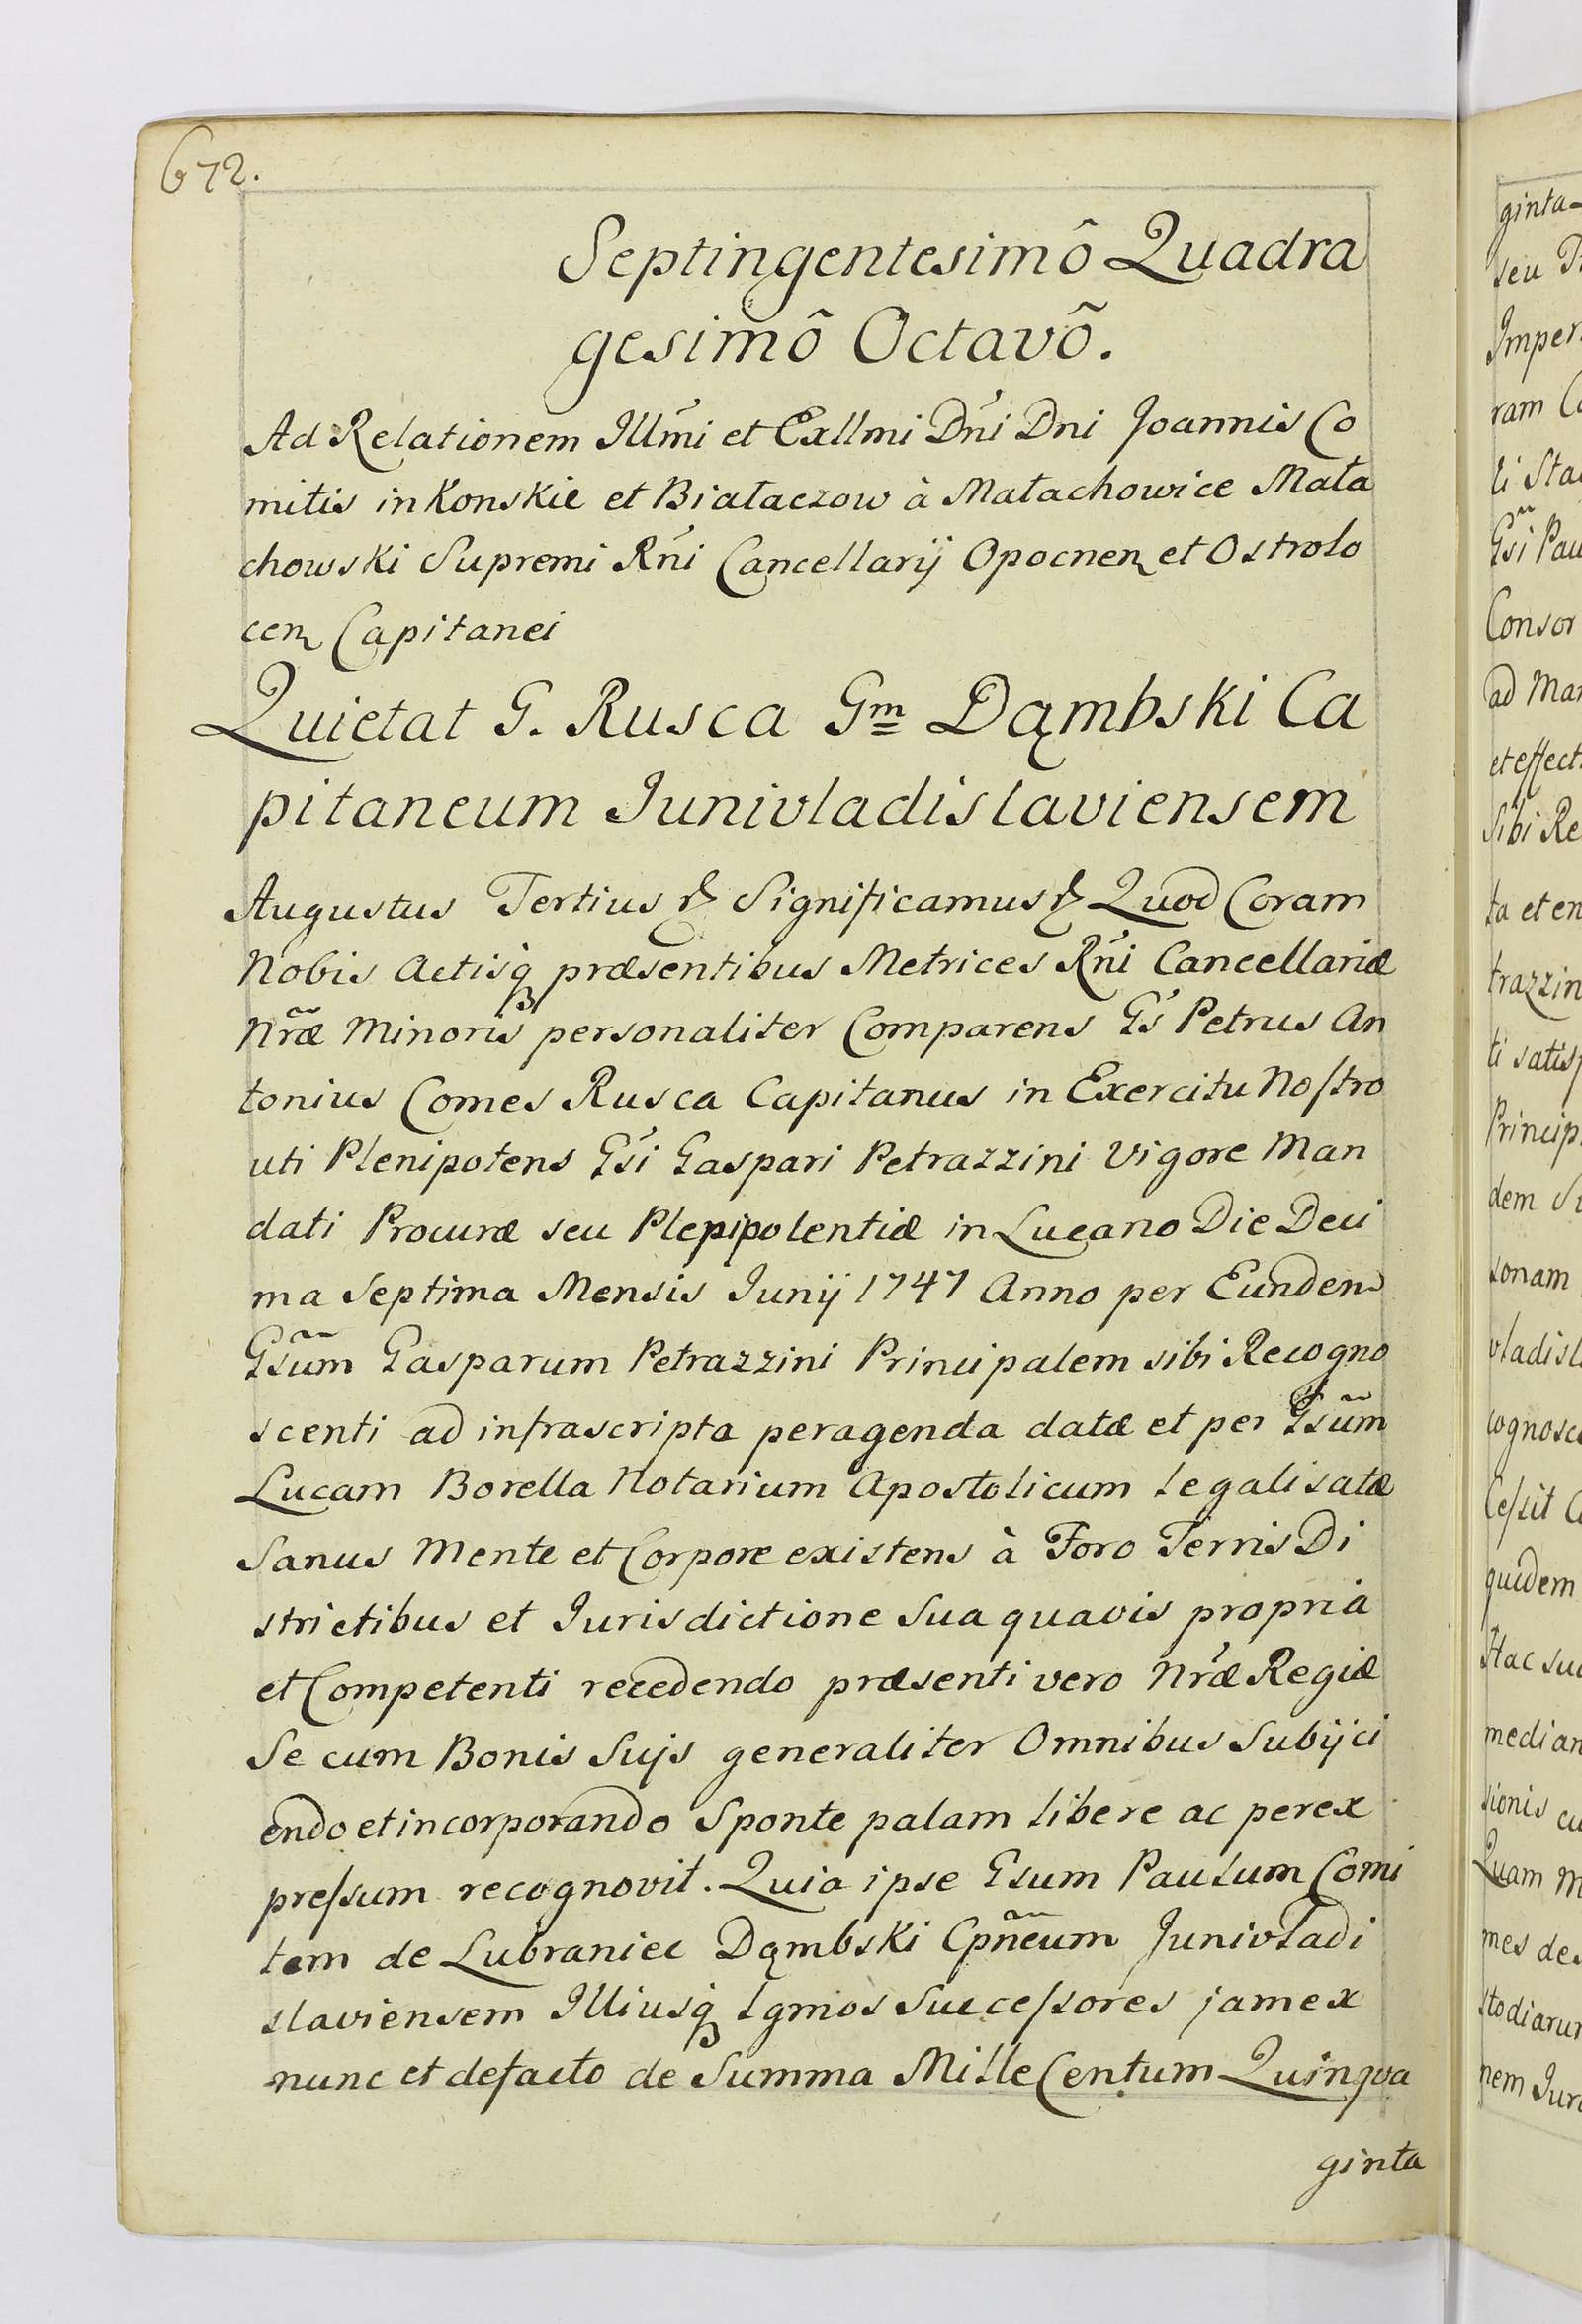 672.
Septingentesimô Quadra
gesimô Octavô.
Ad Relationem Illmi et Exllmi Dni Dni Joannis Co
mitis in Konskie et Białaczow à Małachowice Mała
chowski Supremi Rni Cancellarij Opocnen et Ostrolo
cen Capitanei
Quietat G. Rusca Gm Dąmbski Ca
pitaneum Junivladislaviensem
Augustus Tertius & Significamus & Quod Coram
Nobis Actisq præsentibus Metrices Rni Cancellariæ
Nræ Minoris personaliter Comparens Gs Petrus An
tonius Comes Rusca Capitanus in Exercitu Nostro
uti Plenipotens Gsi Gaspari Petrazzini Vigore Man
dati Procuræ seu Plepipolentiæ in Lugano Die Deci
ma Septima Mensis Junij 1747 Anno per Eundem
Gsum Gasparum Petrazzini Principalem sibi Recogno
scenti ad infrascripta peragenda datæ et per Gsum
Lucam Borella Notarium Apostolicum legalisatæ
Sanus Mente et Corpore existens à Foro Terris Di
strictibus et Jurisdictione Sua quavis propria
et Competenti recedendo præsenti vero Nræ Regiæ
Se cum Bonis Suis generaliter Omnibus Subijci
endo et incorporando Sponte palam libere ac perex
pressum recognovit. Quia ipse Gsum Paulum Comi
tem de Lubraniec Dąmbski Cpneum Junivladi
slaviensem Illiusq lgmos Successores jam ex
nunc et defacto de Summa Mille Centum Quinqua
ginta
ginta
seu
Imper
ram
li Sta
Gsi Pau
Consor
ad Man
et effect
Sibi Re
ta et en
trazzin
ti satisf
Princip
dem
sonam
vladisl
cognosce
Cessit
quidem
Hac sua
median
sionis cu
Quam M
mes de
stodiarum
nem Juri